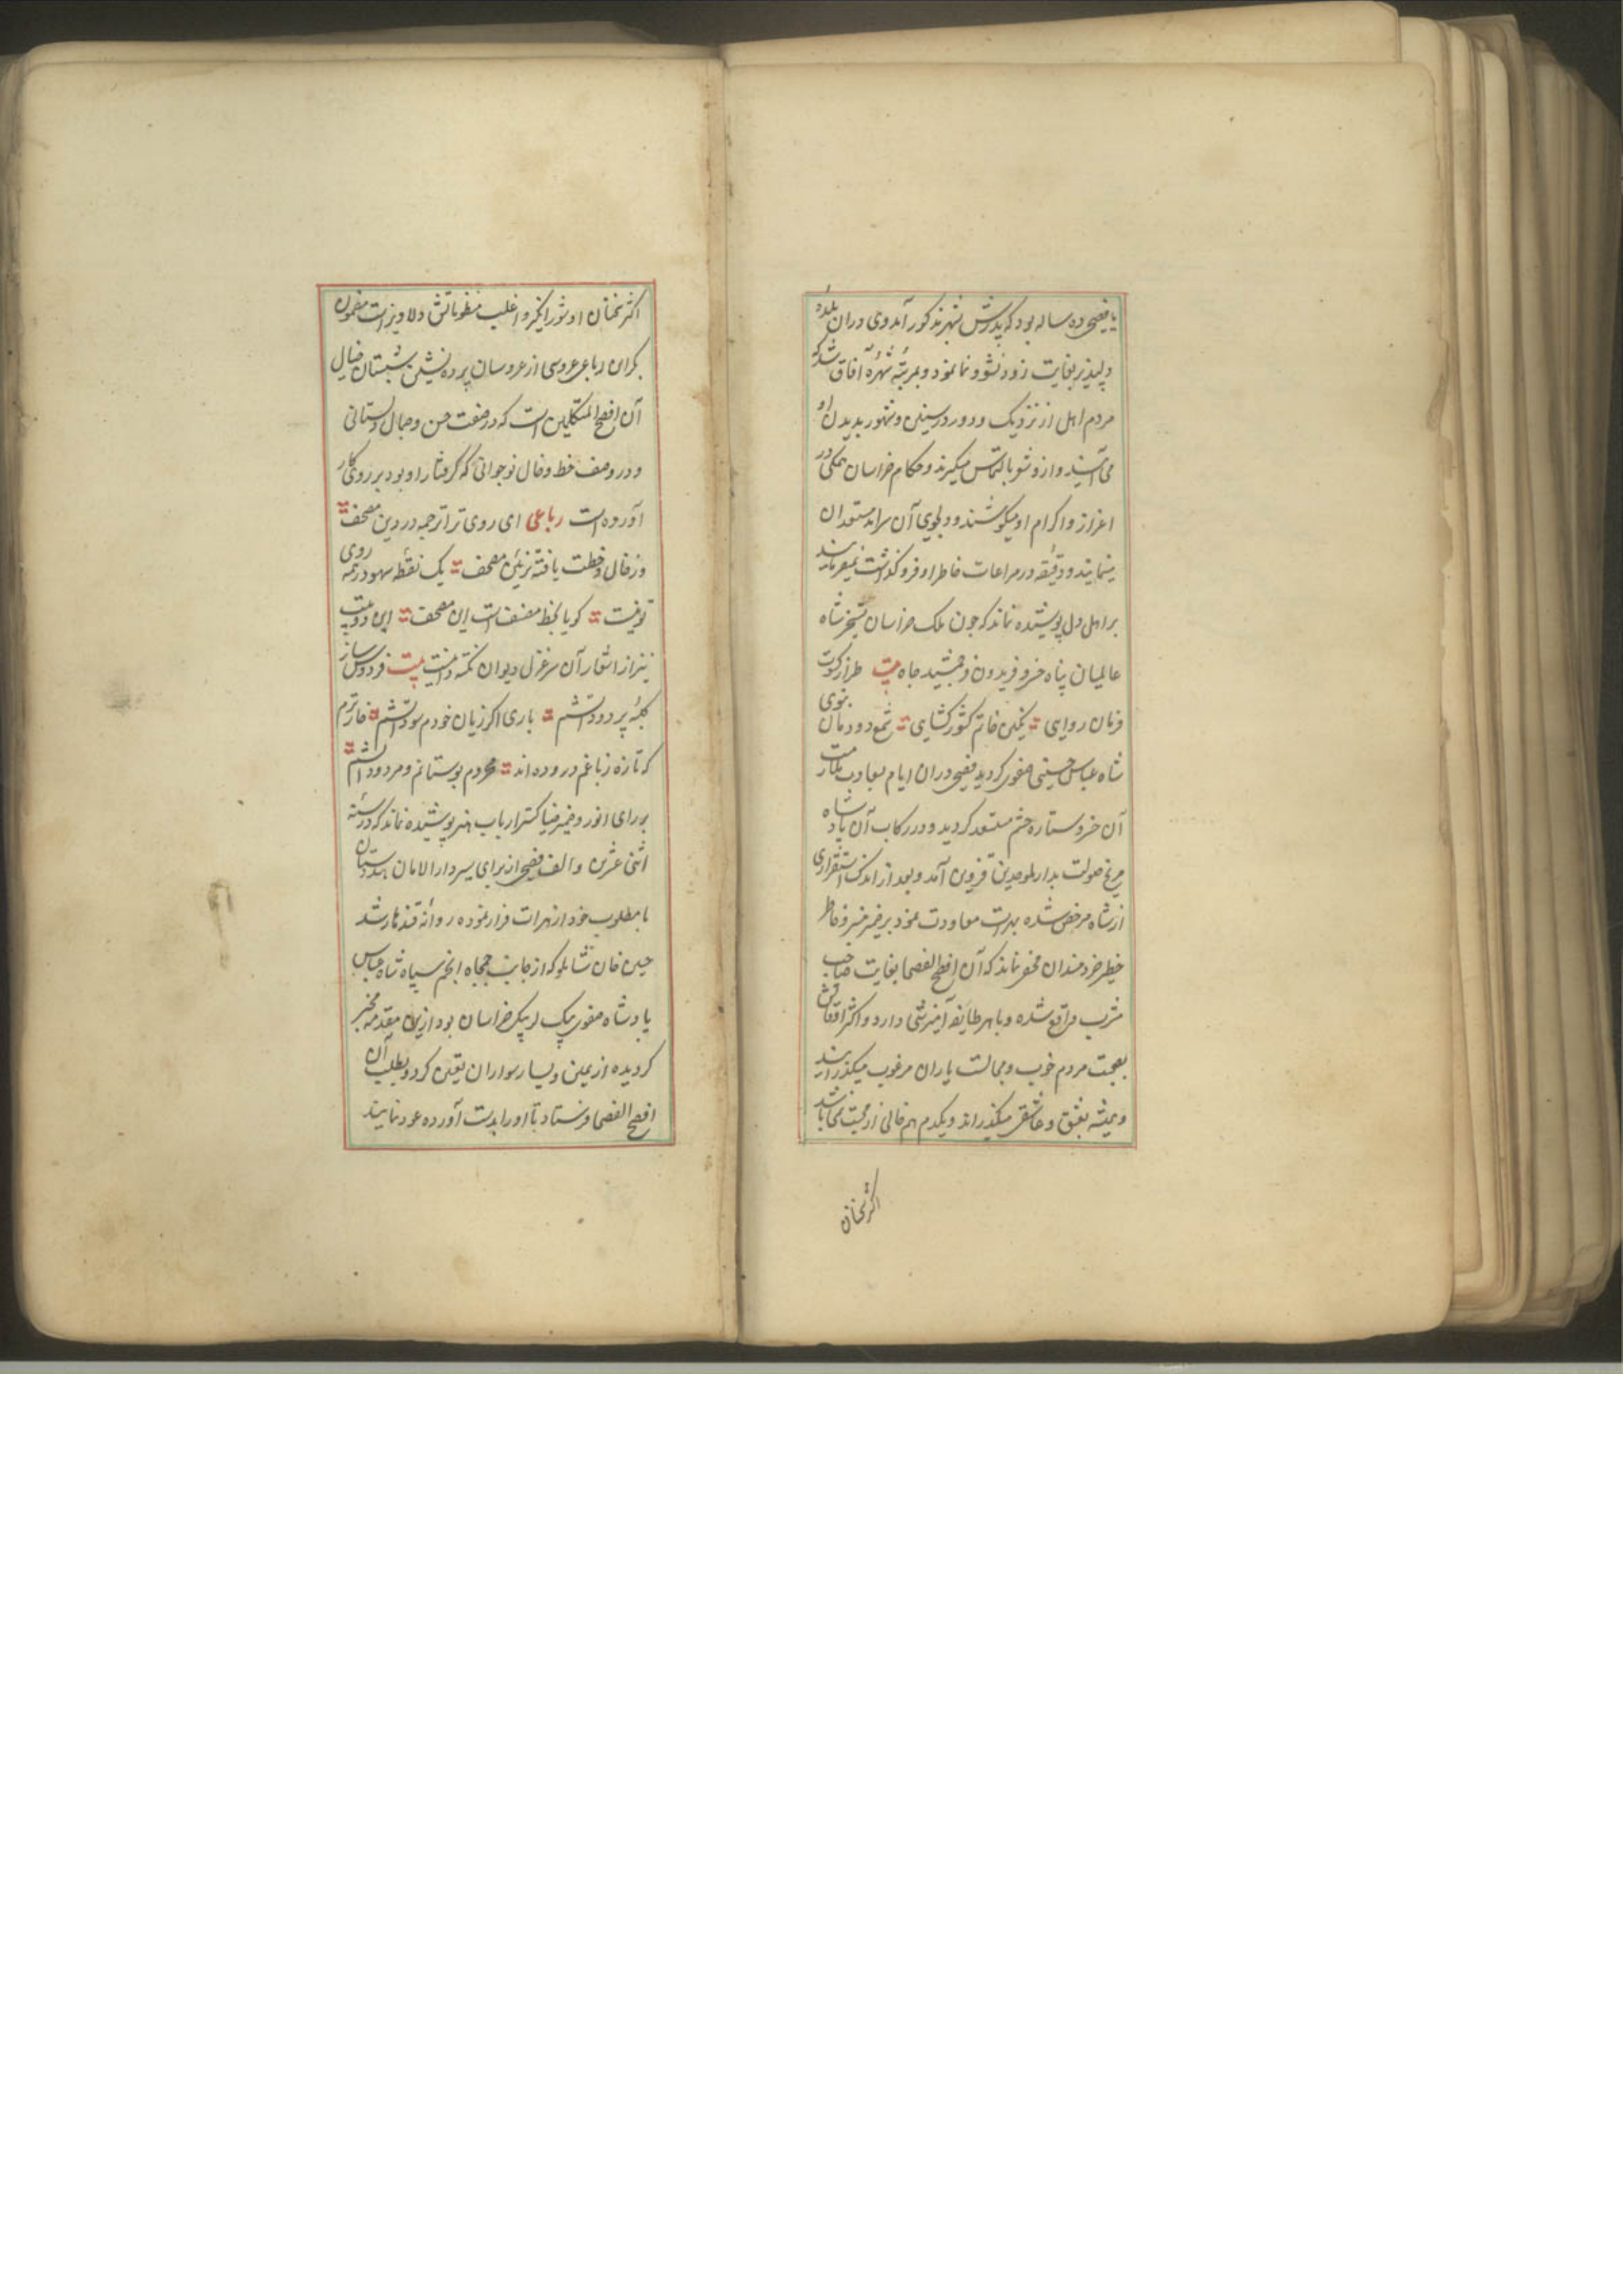 یا فصیحی ده ساله بود که پدرش بشهر مذکور آمد وی دران بلده
دلپذیر بغایت زود نشو و نما نمود و بمرتبه شهرهٔ آفاق شد که
مردم اهل از نزدیک و دور در سنین و شهور بدیدن او
می آیند و ازو شعر بالتماس میگیرند و حکام خراسان همگی در
اعزاز و اکرام او میکوشند و دلجوی آن سرآمد مستعدان
مینمایند و دقیقه در مراعات خاطر او فرو گذاشت نمیفرمایند
بر اهل دل پوشیده نماند که چون ملک خراسان بتسخیر شاه
عالمیان پناه خسرو فریدون فر جمشید جاه بیت طراز کسوت
فرمان روایی نگین خاتم کشور کشای شمع دودمان نبوی
شاه عباس حسینی صفوی گردید فصیحی دران ایام بسعادت ملازمت
آن خسرو ستاره حشم مستعد گردید و در رکاب آن پادشاه
مریخ صولت بدار الموحدین قزوین آمد و بعد از اندک استقراری
از شاه مرخص شده بهرات معاودت نمود بر ضمیر منیر و خاطر
خطیر خردمندان مخفی نماند که آن افصح الفصحا بغایت صاحب
مشرب واقع شده و با هر طایفه آمیزشی دارد و اکثر اوقاتش
بصحبت مردم خوب و مجالست یاران مرغوب میگذرانید
و همیشه بعشق و عاشقی میگذراند و یکدم هم خالی از محبت نمی باشد
اکثر سخنان
اکثر سخنان او شور انگیز و اغلب منظوماتش دلاویز است مضمون
بکران رباعی عروسی از عروسان پرده نشین شبستان خیال
آن افصح المتکلمین است که در صفت حسن و جمال دلستانی
و در وصف خط و خال نوجوانی که گرفتار او بود بر روی کار
آورده است رباعی ای روی ترا ترجمه در دین مصحف
وز خال و خطت یافته تزئین مصحف یک نقطه سهو در همه روی
تو نیست گویا بخط مصنف است این مصحف این دو بیت
نیز از اشعار آن سر غزل دیوان نکته دانیست بیت فردوس ساز
کلبهٔ پر دود آتشم باری اگر زیان خودم سود آتشم خار ترم
که تازه ز باغم دروده اند محروم بوستانم و مردود آتشم
بر رای انور و ضمیر ضیا گستر ارباب هنر پوشیده نماند که در سنه
اثنی عشرین و الف فصیحی از برای سیر دار الامان هندوستان
با مطلوب خود از هرات فرار نموده روانه قندهار شد
حسین خان شاملو که از جانب جمجاه انجم سپاه شاه عباس
پادشاه صفوی بیک لر بیک خراسان بود ازین مقدمه مخبر
گردیده از یمین و یسار سواران تعین کرد و بطلب آن
افصح الفصحا فرستاد تا او را بدست آورده عود نمایند